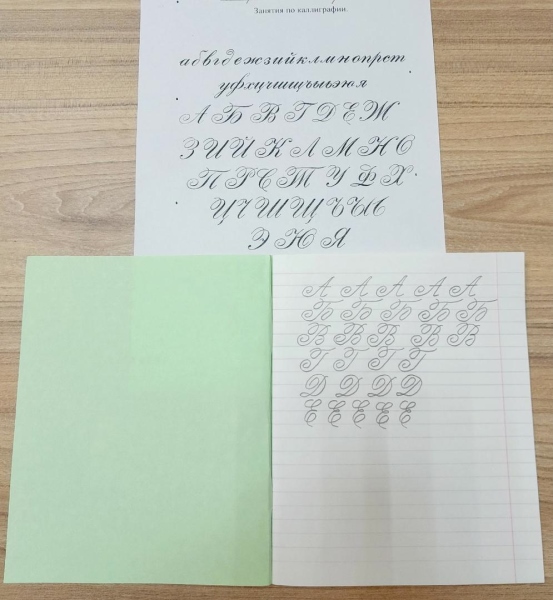 Занятия по каллиграфии.
абвгдежзийклмнопрст
уфхцчшщъыьэюя
А Б В Г Д Е Ж
З И Й К Л М Н О
П Р С Т У Ф Х
Ц Ч Ш Щ Ъ Ы Ь
Э Ю Я
А А А А А
Б Б Б Б Б
В В В В В
Г Г Г Г
Д Д Д Д
Е Е Е Е Е